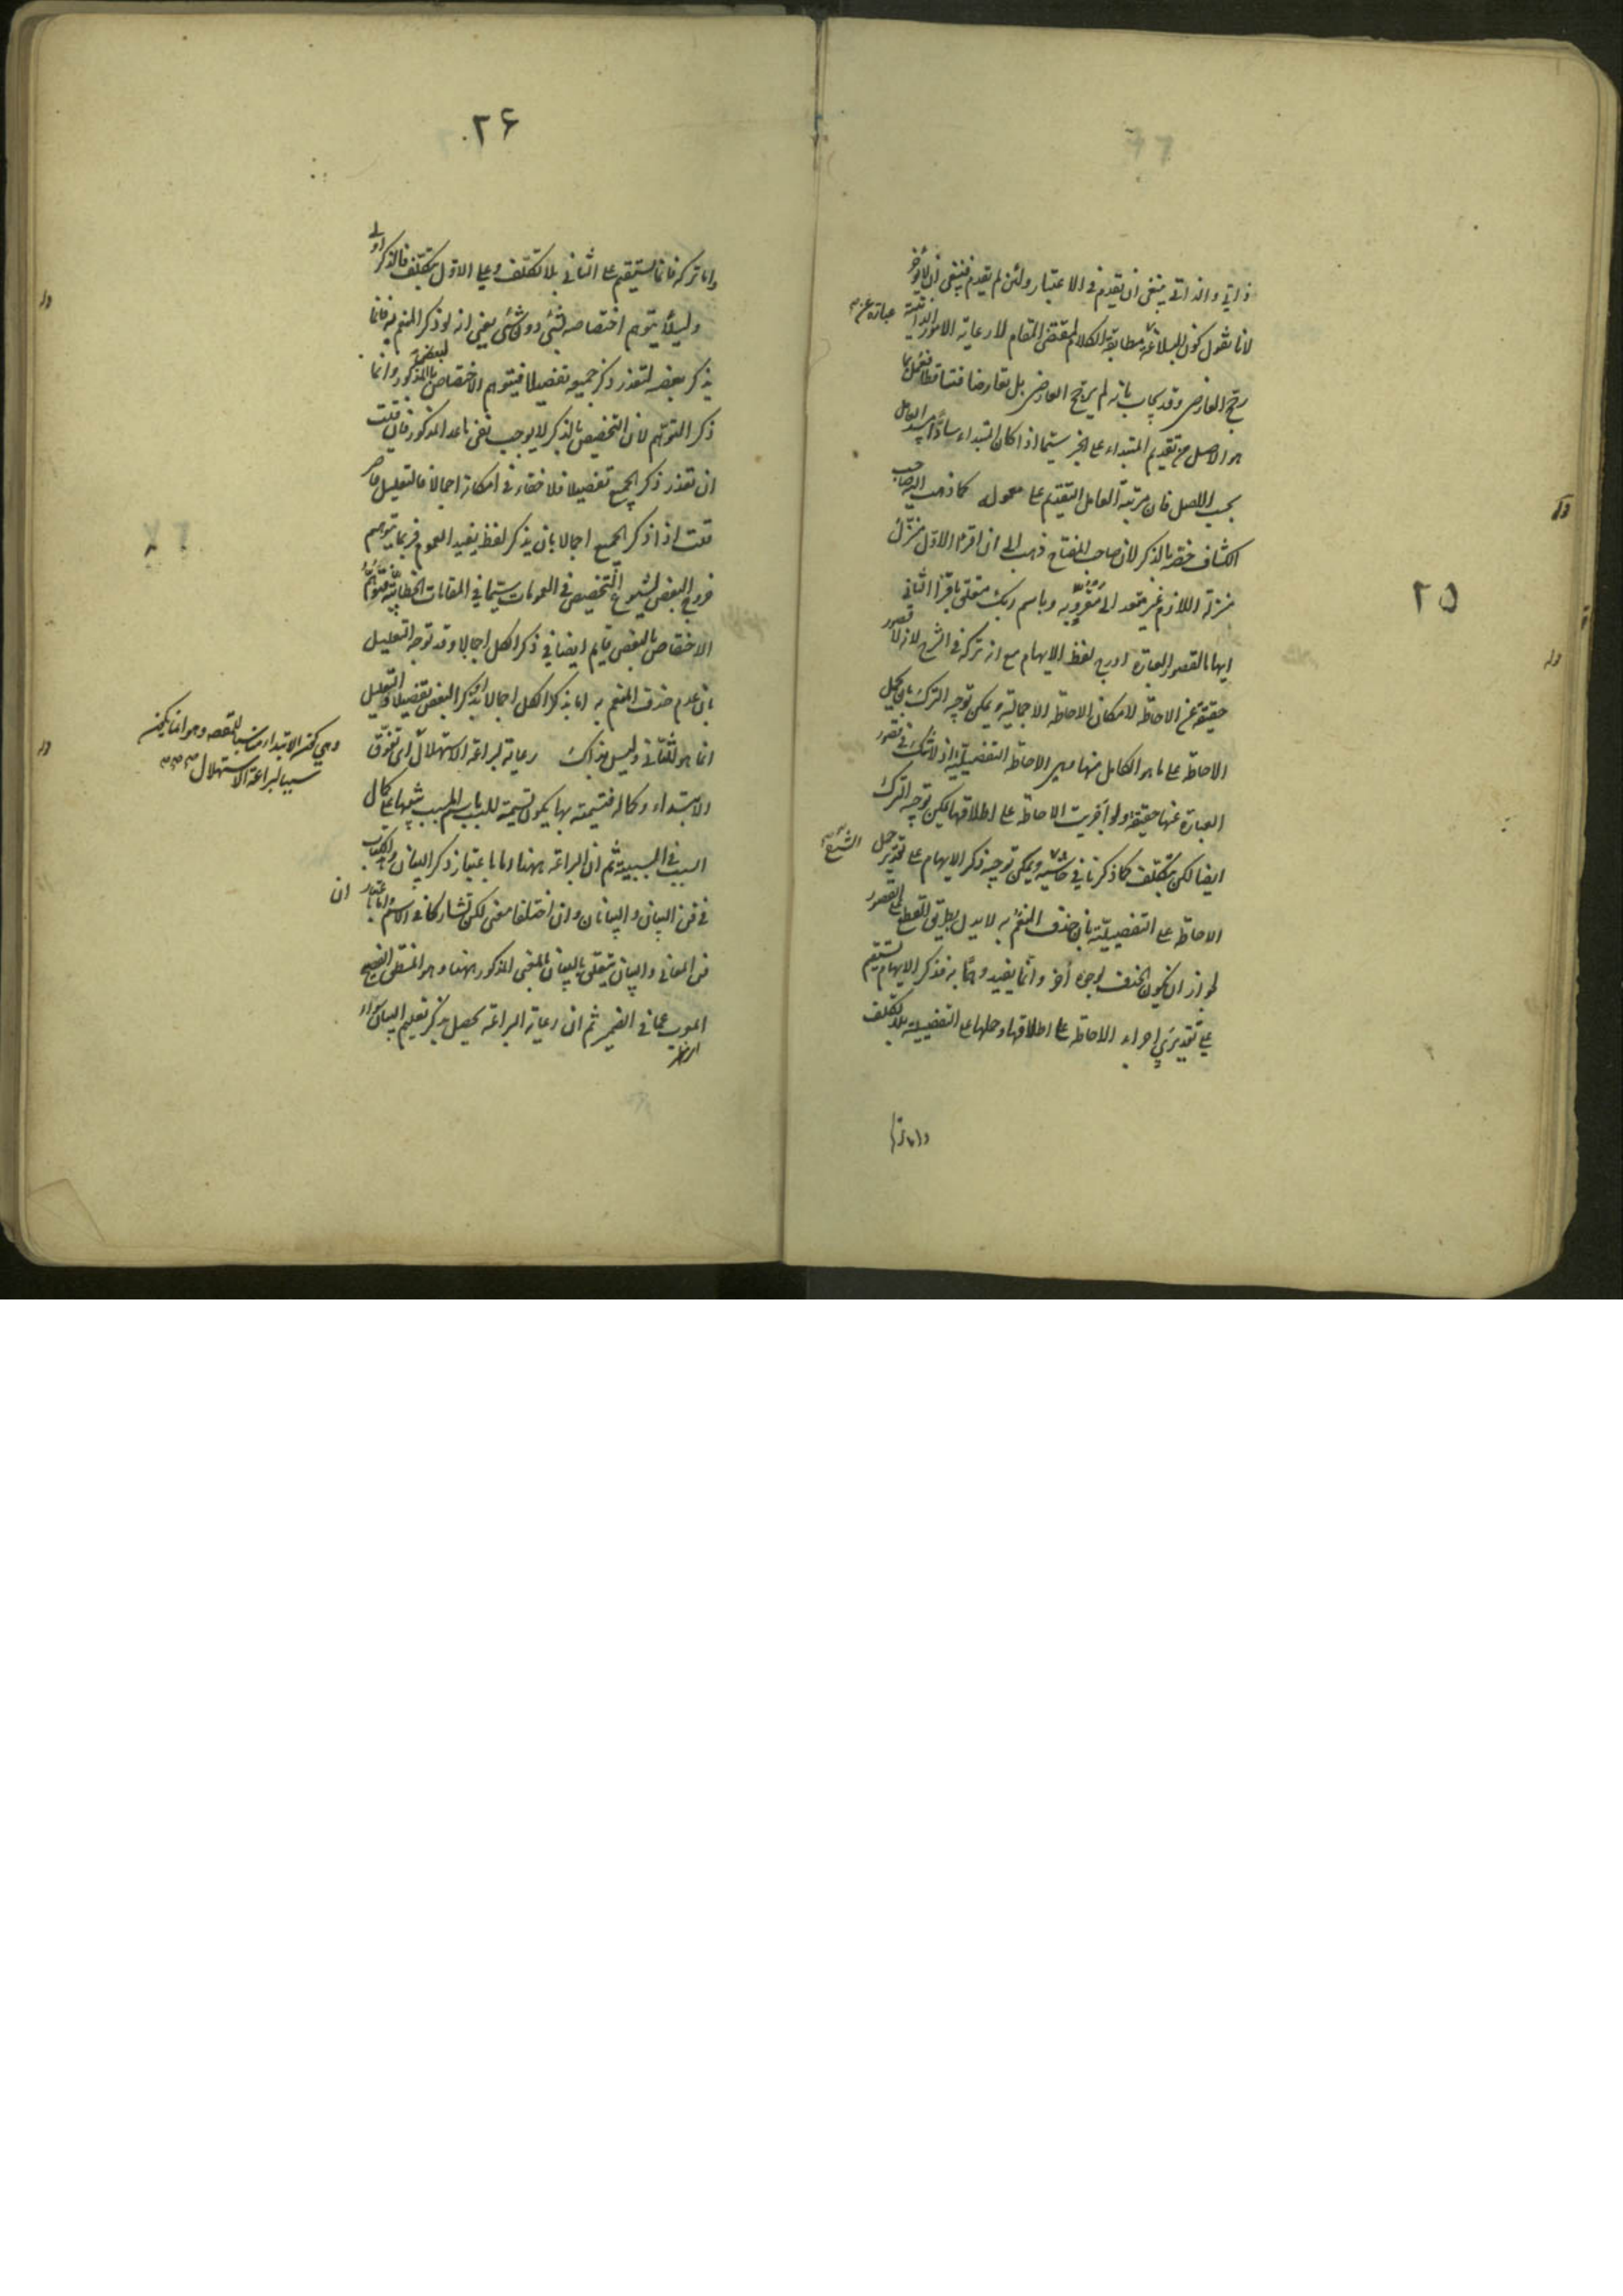 ٢٥
ذاتي والذاتي ينبغي ان يقدم في الاعتبار ولئن لم يقدم فينبغي ان لا يؤخر
لانا نقول كون البلاغة عبارة عن مطابقة الكلام لمقتضى المقام لا رعاية الامور الذاتية
رجح العارض وقد يجاب بانه لم يرجح العارض بل تعارضا فتساقطا فعمل بما
هو الاصل من تقديم المبتداء على الخبر سيما اذا كان المبتداء سادا مسد العامل
بحسب الاصل فان مرتبة العامل التقديم على معموله كما ذهب اليه صاحب
الكشاف خصه بالذكر لان صاحب المفتاح ذهب الى ان اقرء الاول منزل
منزلة اللازم غير متعد الى مقروء به وباسم ربك متعلق باقرء الثاني
ايهاما لقصور العبارة ادرج لفظ الايهام مع انه تركه في الشرح لانه لا قصور
حقيقة عن الاحاطة لامكان الاحاطة الاجمالية ويمكن توجيه الترك بان يحمل
الاحاطة على ما هو الكامل منها وهي الاحاطة التفصيلية اذ لا شك في قصور
العبارة عنها حقيقة ولو اجريت الاحاطة على اطلاقها يمكن توجيه الترك
ايضا لكن بتكلف كما ذكرنا في حاشية الشرح ويمكن توجيه ذكر الايهام على تقدير حمل
الاحاطة على التفصيلية بان حذف المنعم به لا يدل بطريق القطع على القصور
لجواز ان يكون الحذف لوجوه أخر وانما يفيد وهما به فذكر الايهام يستقيم
على تقديري اجراء الاحاطة على اطلاقها وحملها على التفصيلية بلا تكلف
واما تركه
٢۶
واما تركه فانما يستقيم على الثاني بلا تكلف وعلى الاول بتكلف فالذكر اولى
ولئلا يتوهم اختصاصه بشئ دون شئ يعني انه لو ذكر المنعم به فانما
يذكر بعضه لتعذر ذكر جميعه تفصيلا فيتوهم الاختصاص بالبعض المذكور وانما
ذكر التوهم لان التخصيص بالذكر لا يوجب نفي ما عد المذكور فان قلت
ان تعذر ذكر الجميع تفصيلا فلا خفاء في امكانه اجمالا فالتعليل قاصر
قلت اذا ذكر الجميع اجمالا بان يذكر لفظ يفيد العموم فربما يتوهم
خروج البعض لشيوع التخصيص في العمومات سيما في المقامات الخطابية فتوهم
الاختصاص بالبعض قايم ايضا في ذكر الكل اجمالا وقد توجه التعليل
بان عدم حذف المنعم به اما بذكر الكل اجمالا او بذكر البعض تفصيلا والتعليل
انما هو للثاني وليس بذاك رعاية لبراعة الاستهلال اى تفوق
الابتداء وكماله فتسميته بها يكون تسمية للسبب باسم المسبب تنبيها على كمال
السبب في السببية ثم ان البراعة ههنا اما باعتبار ذكر البيان والكتاب
في فن البيان والبيانان وان اختلفا معنى لكن تشاركا في الاسم واما باعتبار ان
فن المعاني والبيان يتعلق بالبيان بالمعنى المذكور ههنا وهو المنطق الفصيح
المعرب عما في الضمير ثم ان رعاية البراعة تحصل بذكر تعليم البيان سواء
وهي كون الابتداء مناسبا للمقصود وهو انما يكون
سببا لبراعة الاستهلال